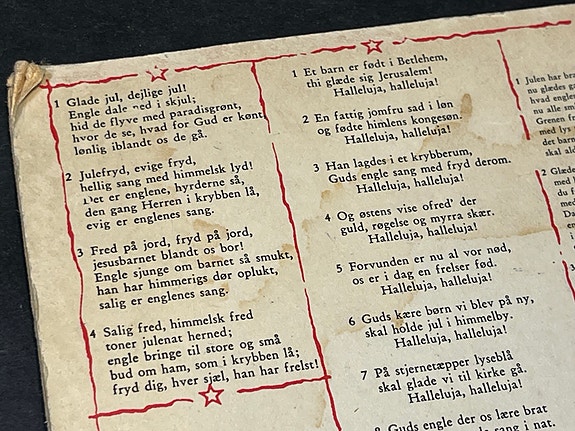 1 Glade jul, dejlige jul!
Engle dale ned i skjul;
hid de flyve med paradisgrønt,
hvor de se, hvad for Gud er kønt
lønlig iblandt os de gå.
2 Julefryd, evige fryd,
hellig sang med himmelsk lyd!
Det er englene, hyrderne så,
den gang Herren i krybben lå,
evig er englenes sang.
3 Fred på jord, fryd på jord,
jesusbarnet blandt os bor!
Engle sjunge om barnet så smukt,
han har himmerigs dør oplukt,
salig er englenes sang.
4 Salig fred, himmelsk fred
toner julenat herned;
engle bringe til store og små
bud om ham, som i krybben lå;
fryd dig, hver sjæl, han har frelst!
1 Et barn er født i Betlehem,
thi glæde sig Jerusalem!
Halleluja, halleluja!
2 En fattig jomfru sad i løn
og fødte himlens kongesøn.
Halleluja, halleluja!
3 Han lagdes i et krybberum,
Guds engle sang med fryd derom.
Halleluja, halleluja!
4 Og østens vise ofred' der
guld, røgelse og myrra skær.
Halleluja, halleluja!
5 Forvunden er nu al vor nød,
os er i dag en frelser fød.
Halleluja, halleluja!
6 Guds kære børn vi blev på ny,
skal holde jul i himmelby.
Halleluja, halleluja!
7 På stjernetæpper lyseblå
skal glade vi til kirke gå.
Halleluja, halleluja!
8 Guds engle der os lære brat
sang i nat.
1 Julen har
nu glædes
hvad
nu alle
Grenen
med lys
det barn
skal
2
med
du
med